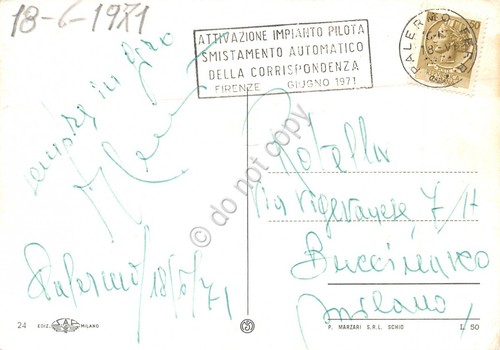 18-6-1971
ATTIVAZIONE IMPIANTO PILOTA
SMISTAMENTO AUTOMATICO
DELLA CORRISPONDENZA
FIRENZE GIUGNO 1971
PALERMO FERR
sempre in giro
Palermo 18/6/71
Rotella
Via Vigevanese 7/A
Buccinasco
Milano
do not copy
24 EDIZ. SAF MILANO
P. MARZARI S.R.L. SCHIO
L. 50